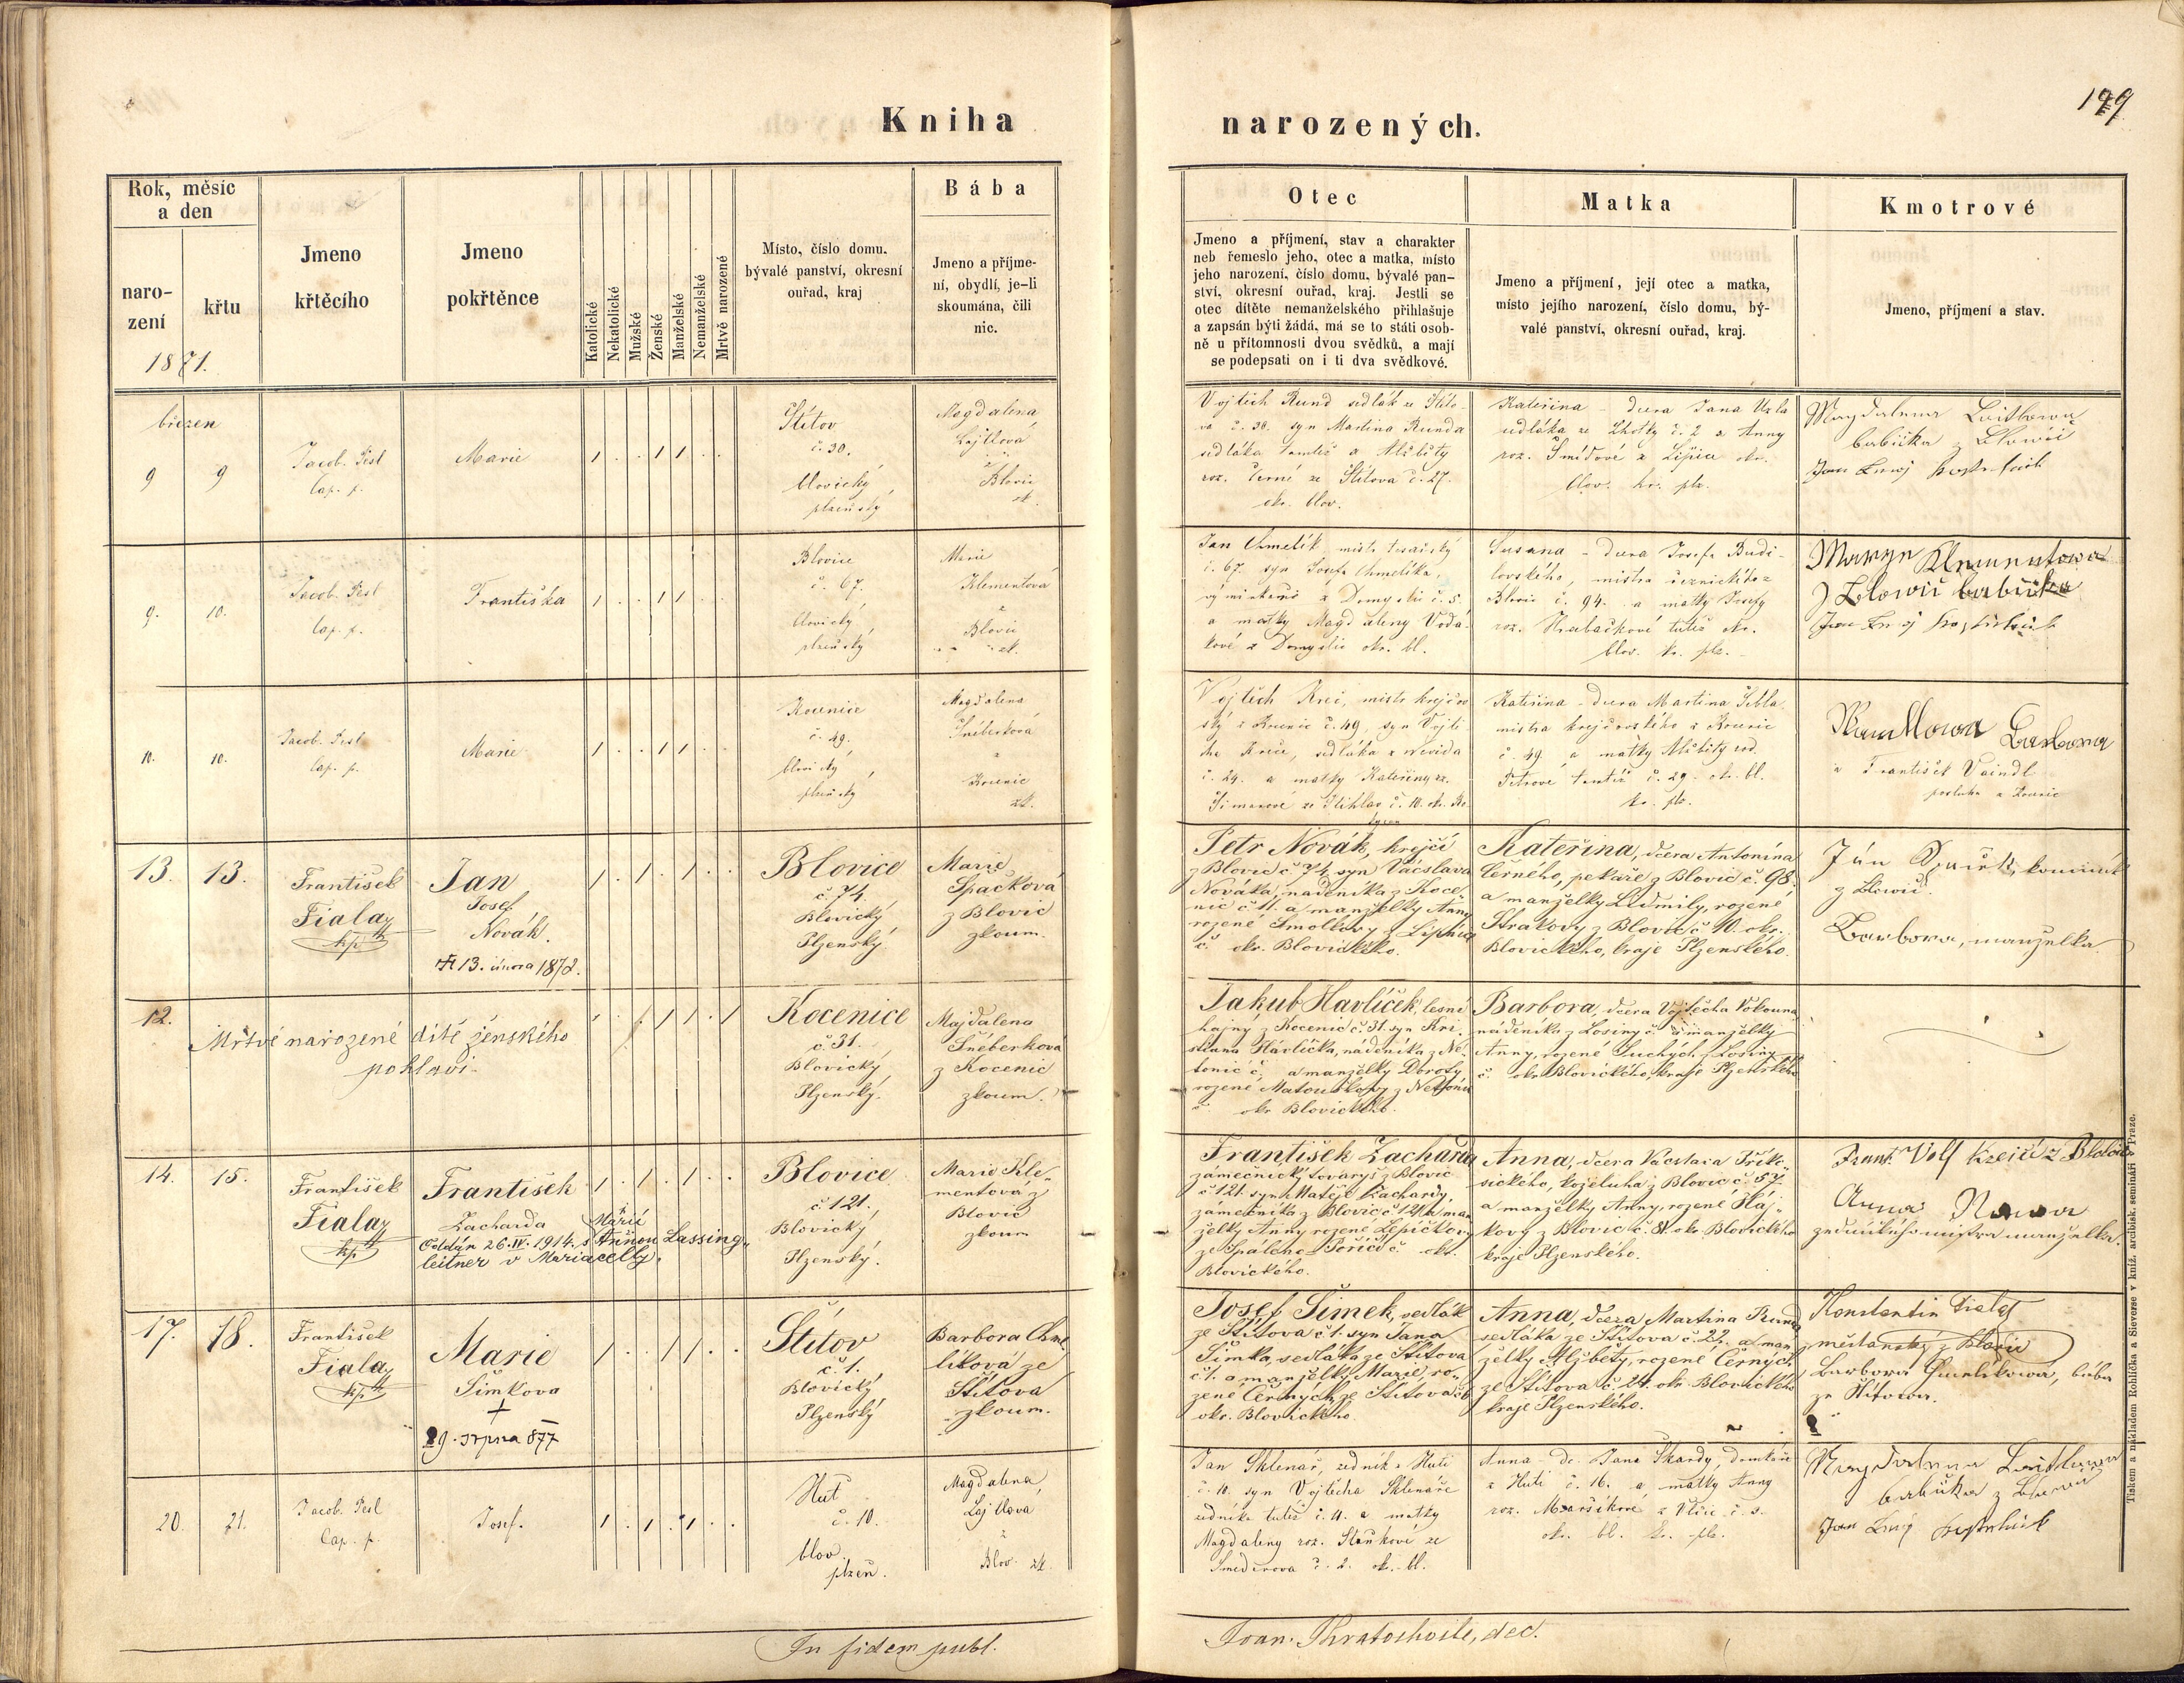 Kniha
narozených.
199
Rok, měsíc
a den
naro-
zení
křtu
1871.
Jmeno
křtěcího
Jmeno
pokřtěnce
Katolické
Nekatolické
Mužské
Ženské
Manželské
Nemanželské
Mrtvě narozené
Místo, číslo domu.
bývalé panství, okresní
ouřad, kraj
Bába
Jmeno a příjme-
ní, obydlí, je-li
skoumána, čili
nic.
Otec
Jmeno a příjmení, stav a charakter
neb řemeslo jeho, otec a matka, místo
jeho narození, číslo domu, bývalé pan-
ství, okresní ouřad, kraj. Jestli se
otec dítěte nemanželského přihlašuje
a zapsán býti žádá, má se to státi osob-
ně u přítomnosti dvou svědků, a mají
se podepsati on i ti dva svědkové.
Matka
Jmeno a příjmení, její otec a matka,
místo jejího narození, číslo domu, bý-
valé panství, okresní ouřad, kraj.
Kmotrové
Jmeno, příjmení a stav.
březen
9 9
Jacob. Pesl
Cap. p.
Marie
Štítov
č. 30.
blovický
plzeňský
Magdalena
Lajtlová
z
Blovic
zk.
Vojtěch Rund sedlák ze Štíto-
va č. 30. syn Martina Runda
sedláka tamtéž a Alžběty
roz. Černé ze Štítova č. 27.
okr. blov.
Kateřina - dcera Jana
sedláka ze Lhotky č. 2 a Anny
roz. Šmídove z Lipice okr.
blov. kr. plz.
Magdalena Laitlowa
babička z Blowic
Jan
9. 10.
Jacob. Pesl
Cap. p.
Františka
Blovice
č. 67.
blovický
plzeňský
Marie
Klementová
z
Blovic
zk.
Jan Chmelík mistr tesařský
č. 67. syn Josefa Chmelíka,
výminkaře z Domyslic č. 5.
a matky Magdaleny Vodá-
kové z Domyslic okr. bl.
Susana - dcera Josefa Budi-
lovského, mistra řeznického z
Blovic č. 94. a matky Josefy
roz. Hrabačkové tutéž okr.
blov. kr. plz.
Marye Klementowa
z Blowic babička
Jan
10. 10.
Jacob. Pesl
Cap. p.
Marie
Kocenice
č. 49.
blovický
plzeňský
Magdalena
Šneberková
z
Kocenic
zk.
Vojtěch Krei, mistr krejčov
ský z Kocenic č. 49. syn Vojtě
cha Kreie, sedláka z
č. 24. a matky Kateřiny roz.
Šimanové ze č. 10. okr.
Kateřina - dcera Martina
mistra krejčovského z Kocenic
č. 49. a matky Alžběty rod.
Petrove tamtéž č. 29. okr. bl.
kr. plz.
Barbora
a František Vaindl
posluha z Kocenic
13. 13.
František
Fiala
kp.
Jan
Josef
Novák.
13. února 1872.
Blovice
č. 74.
Blovický
Plzenský
Marie
Špačková
z Blovic
zkoum.
Petr Novák, krejčí
z Blovic č. 74 syn Václava
Nováka, nádeníka z Koce-
nic č. 11. a manželky Anny
rozené Smolkovy z Lipnice
č. okr. Blovického.
Kateřina, dcera Antonína
Černého, pekaře z Blovic č. 98.
a manželky Ludmily, rozené
Strakovy z Blovic č. 10. okr.
Blovického, kraje Plzenského.
Ján Špaček, kominík
z Blowic.
Barbora, manzelka
12.
Mrtvé narozené dítě ženského
pohlaví.
Kocenice
č 31.
Blovický
Plzenský.
Majdalena
Šneberková
z Kocenic
zkoum.
Jakub Havlíček, lesní
hajný z Kocenic č. 31. syn Kri-
stiana Havlíčka, nádeníka z Ne-
tonic č. a manželky Doroty
rozené Matouškovy z
č. okr. Blovického.
Barbora, dcera Vojtěcha Vokouna,
nádeníka z Losiny č. a manželky
Anny, rozené Suchých z Losiny
č. okr. Blovického, kraje Plzenského
14. 15.
František
Fiala
kp.
František
Zacharda
Oddán 26.IV. 1914. s Annou Lassing-
leitner v Mariacelly.
Blovice
č. 121.
Blovický
Plzenský.
Marie Kle-
mentová z
Blovic
zkoum
František Zacharda
zámečnický tovaryš z Blovic
č 121. syn Matěje Zachardy,
zámečníka z Blovic č 121. a man
želky Anny rozené Lepičkovy
ze Spáleného Poříčí č. okr.
Blovického.
Anna, dcera Václava Příkč-
sického, koželuha z Blovic č. 57.
a manželky Anny, rozené Háj-
kovy z Blovic č. 81. okr. Blovického
kraje Plzenského.
Frant. Volf Kreičí z Blovic
Anna
zednického mistra manželka.
17. 18.
František
Fiala
kp.
Marie
Šimkova
+
29. srpna 877
Štítov
č. 1.
Blovický
Plzenský
Barbora Chme-
líková ze
Štítova
zkoum.
Josef Šimek, sedlák
ze Štítova č 1. syn Jana
Šimka, sedláka ze Štítova
č 1. a manželky Marie, ro-
zené Černých, ze Štítova č 6
okr. Blovického.
Anna, dcera Martina Runda
sedláka ze Štítova č. 22. a man
želky Alžběty, rozené Černých
ze Štítova č. 24. okr. Blovického
kraje Plzenského.
Konstantin Fiala
měštanský z Blovic
Barbora Chmelikowa, bába
ze Štítowa.
20. 21.
Jacob. Pesl
Cap. p.
Josef.
Huť
č. 10.
blov.
plzeň.
Magdalena
Lajtlova
z
Blov. zk.
Jan Sklenář, zedník z Huti
č. 10. syn Vojtěcha Sklenáře
zedníka tutéž č. 4. a matky
Magdaleny roz. Slánkové ze
Smederova č. 2. okr. bl.
Anna - dc. Jana Škardy, domkáře
z Huti č. 16. a matky Anny
roz. Maršíkove z Vlčic č. 3.
okr. bl. kr. plz.
Magdalena Laitlowa
babička z Blowic
Jan
In fidem publ.
Joan. Skratochvile, dec.
Tiskem a nákladem Rohlíčka a Sieverse v kníž. arcibisk. semináři v Praze.